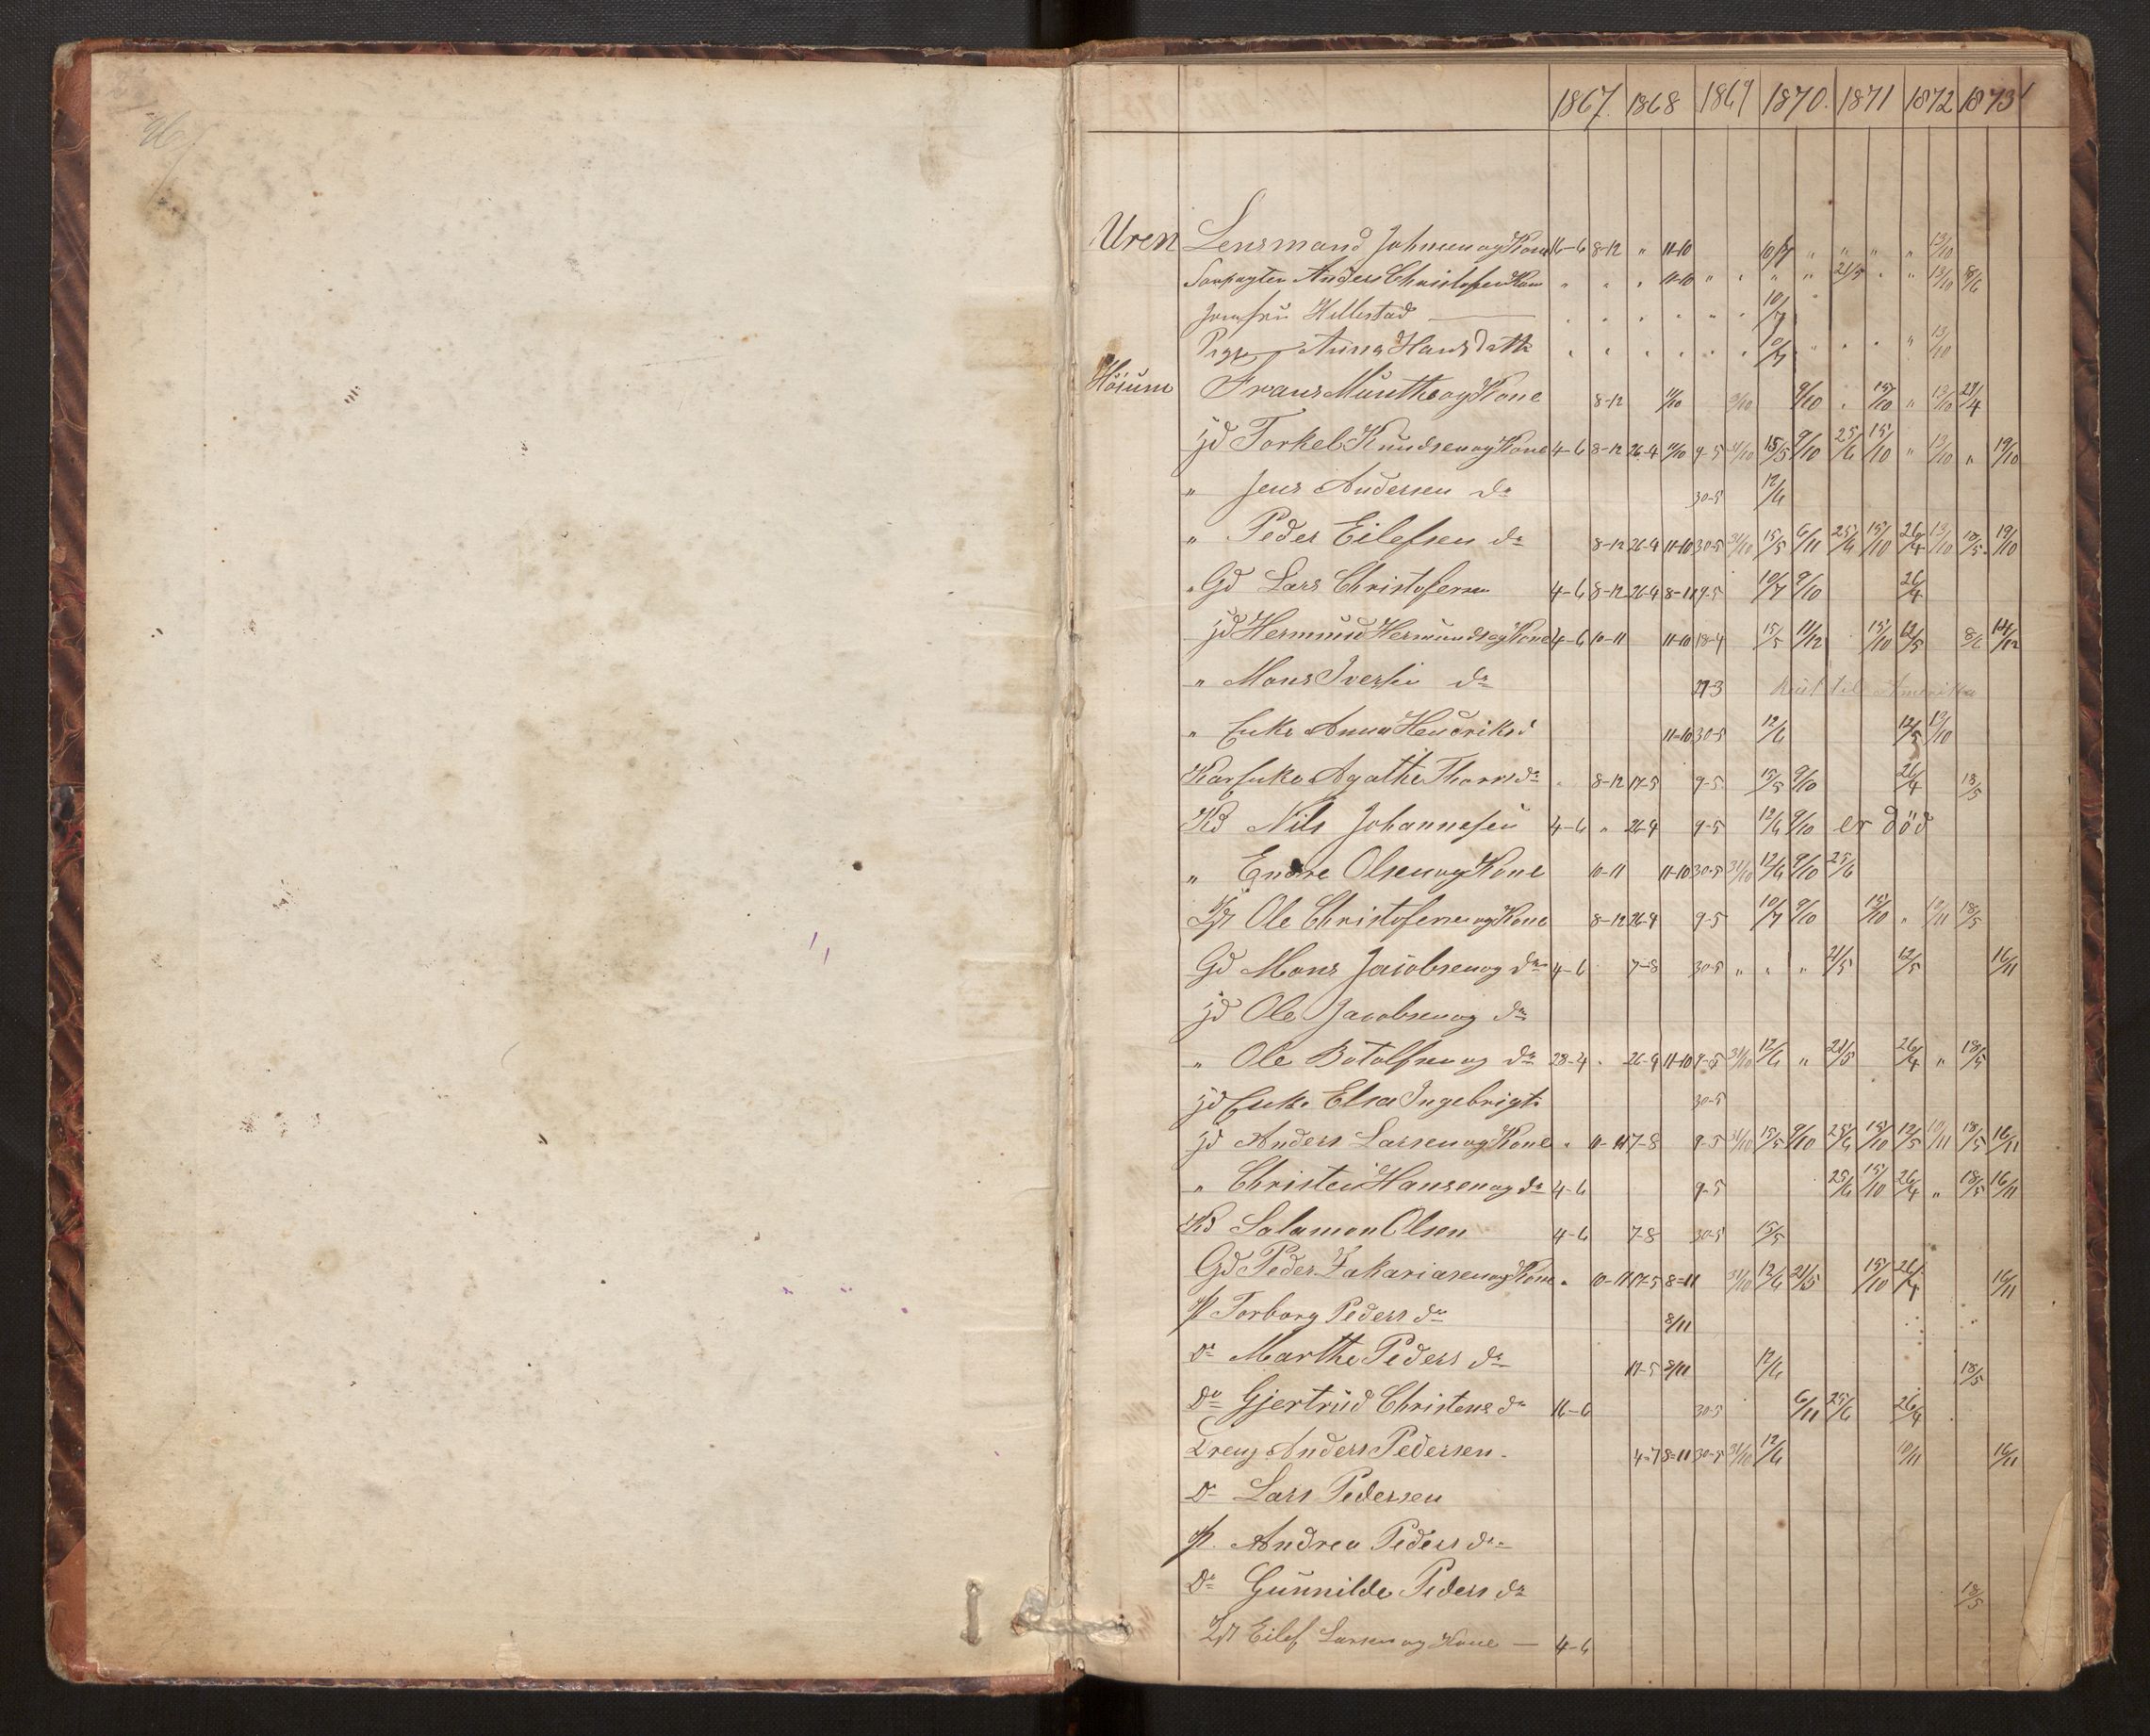 1867. 1868 1869 1870. 1871 1872 1873
Uren Lensmand Johnsen og Kone 16-6 8-12 " 11-10 10/7 " " " " 13/10
Anders Christofersen Kone " " " 11-10 " " " " 21/5 " " 13/10 18/6
Jomfru Hillestad — 10/7
Pige Anna Hansdattr 10/7 " 13/10
Höium Frans Münthe og Kone 8-12 11/10 9/10 9/10 15/10 " 13/10 27/4
Jd Torkel Knudsen og Kone 4-6 8-12 26-4 11/10 9-5 31/10 15/5 9/10 25/6 15/10 " 13/10 " 19/10
" Jens Andersen do 30-5 12/6
" Peder Eilefsen do 8-12 26-9 11-10 30-5 31/10 15/5 6/11 25/6 15/10 26/4 13/10 18/5 19/10
" Gd Lars Christofersen 4-6 8-12 26-9 8-11 9-5 10/7 9/10 26/4
jd Hermund Hermunds og Kone 4-6 10-11 11-10 18-4 15/5 11/12 15/10 12/5 8/6 14/12
" Mons Iversen do 29-3 Reist til Amerika
" Enke Anna Henriksd 11-10 30-5 12/6 12/5 13/10
Agathe Thorsda 8-12 17-5 9-5 15/5 9/10 26/4 18/5
Kd Nils Johannesen 4-6 " 26-9 9-5 12/6 9/10 er död
" Endre Olsen og Kone 10-11 11-10 30-5 31/10 12/6 9/10 25/6
Ole Christofersen og Kone 8-12 26-9 9-5 10/7 9/10 15/10 " 10/11 18/5
Gd Mons Jacobsen og do 4-6 7-8 30-5 " " " 21/5 12/5 16/11
jd Ole Jacobsen og do
" Ole Botolfsen og do 28-4 26-9 11-10 9-5 31/10 12/6 " 21/5 26/4 " 18/5
jd Enke Elsa Ingebrigts 30-5
jd Anders Larsen og Kone 10-11 7-8 9-5 31/10 15/5 9/10 25/6 15/10 12/5 10/11 18/5 16/11
" Christen Hansen og do 4-6 9-5 25/6 15/10 26/4 " 18/5 16/11
Kd Salamon Olsen 4-6 7-8 30-5 15/5
Gd Peder Zakariasen og Kone " 10-11 17-5 8-11 31/10 12/6 21/5 15/10 26/4 16/11
P Torborg Peders da 8/11
Do Marthe Peders da 17-5 8/11 12/6 18/5
Do Gjertrüd Christens da 16-6 30-5 6/11 25/6 26/4
Dreng Anders Pedersen. 4-7 8-11 30-5 31/10 12/6 10/11 16/11
Do Lars Pedersen
P. Andrea Peders da
Do Gunnilde Peders da 18/5
Eilef Larsen og Kone — 4-6